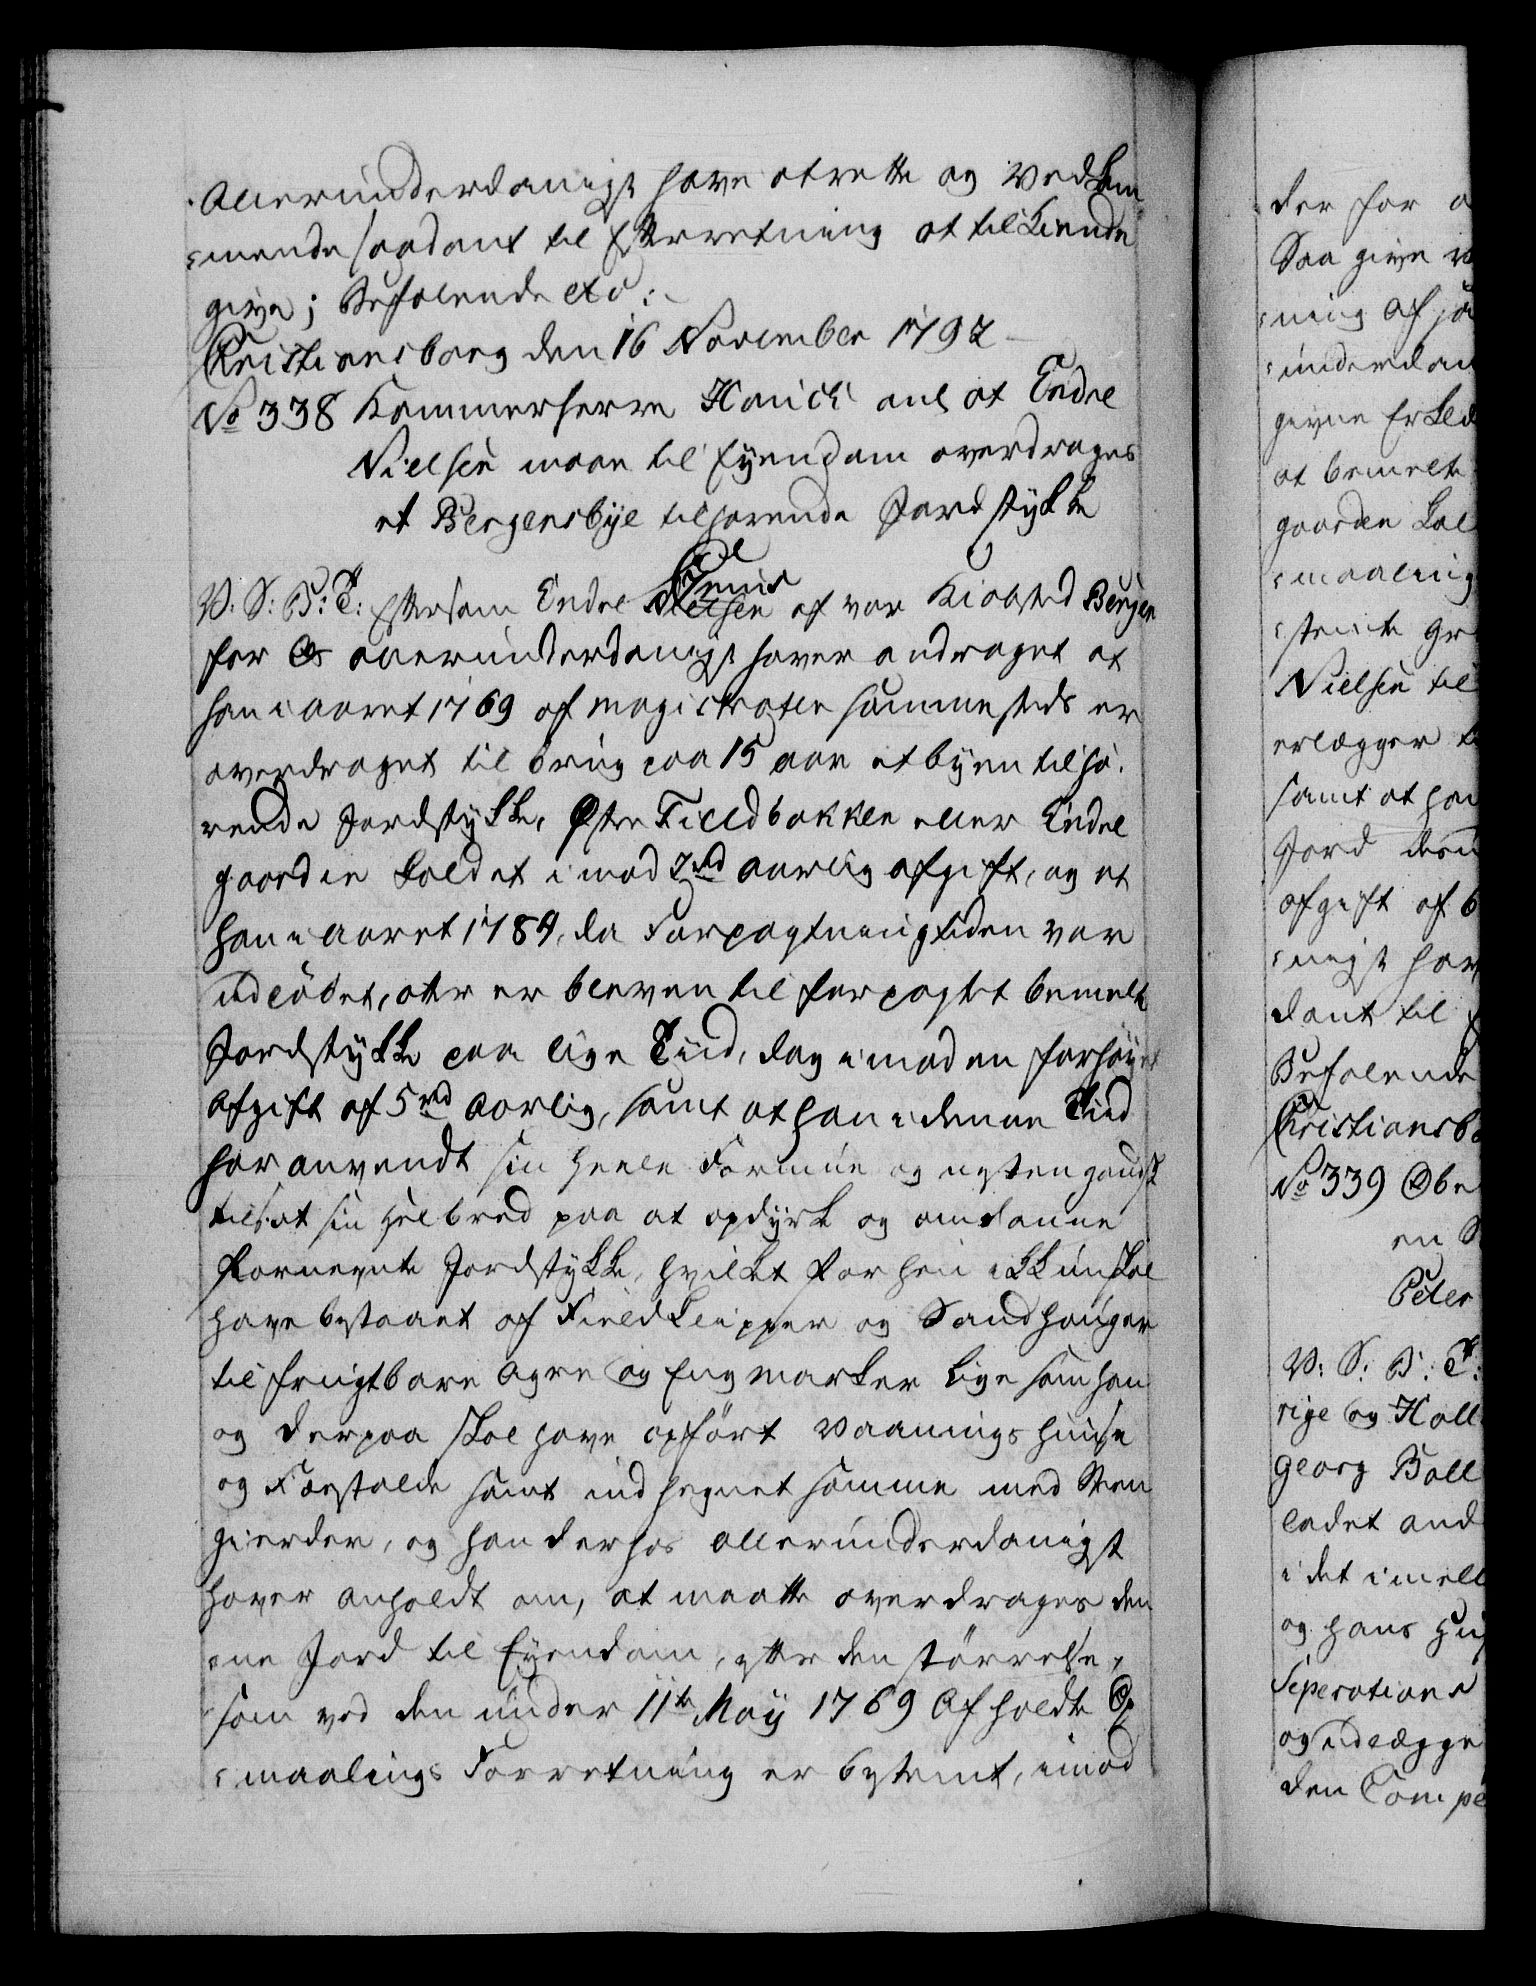 Allerunderdanigst have at rette og Vedkom
mende saadant til Efterretning at tilkiende
give; Befalende etc:
Christiansborg den 16 November 1792
No 338 Kammerherre Hauch anl at Endre
Nielsen maae til Eyendom overdrages
et Bergens bye tilhørende Jord stykke
V: S: B: T: Eftersom Endre Nielsen af vor Kiøbsted Bergen
for Os allerunderdanigst haver andraget at
han i aaret 1769 af Magistraten sammesteds er
overdraget til brug paa 15 aar et byen tilhø-
rende Jordstykke, Østre Fieldbakken eller Endre
gaarden kaldet imod 3rd aarlig afgift, og at
han i aaret 1784, da Forpagtningstiden var
udløbet, atter er bleven til forpagtet bemelte
Jordstykke paa lige Tiid, dog imod en forhøyet
Afgift af 5rd Aarlig, samt at han i denne Tiid
har anvendt sin heele Formue og næsten gandsk
tilsat sin Helbred paa at opdyrke og omdanne
fornevnte Jordstykke, hvilket forhen ikkun skal
have bestaaet af Fieldklipper og Sandhauger
til frugtbare Agre og Engmarker lige som han
og derpaa skal have opført Vaanings huuse
og Fæstalde samt indhegnet samme med Steen
gierder, og han derhos allerunderdanigst
haver anholdt om, at maatte overdrages den
ne Jord til Eyendom, efter den størrelse,
som ved den under 11te May 1769 Afholdte Op
maalings Forretning er bestemt, imod
der for a
Saa give v
ning af
underdan
givne Erklæ
at bemelte
gaarden kal
maaling
stemte Gr
Nielsen til
erlægger
samt at han
Jord desu
afgift af b
nigst hav
dant til
Befalende
Christiansbo
No 339 Obe
en S
Peter
V: S: B: T:
rige og Holl
Georg Boll
ladet and
i det imell
og hans Hu
Seperations
og udlægge
den Compe